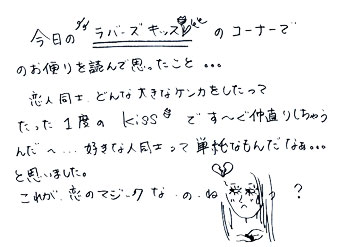 今日の ラバーズ キッス のコーナーで
のお便りを読んで思ったこと...
恋人同士、どんな大きなケンカをしたって
たった1度の kiss で す〜ぐ仲直りしちゃう
んだへ...好きな人同士って単純なもんだなぁ...
と思いました。
これが、恋のマジックな・の・ね ?